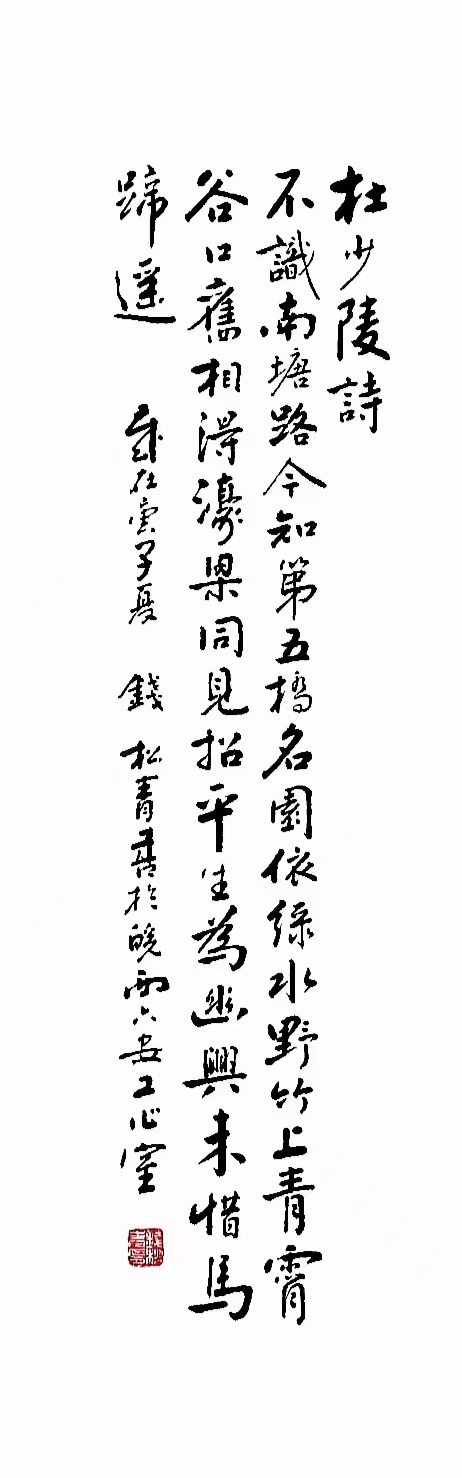 杜少陵詩
不識南塘路今知第五橋名園依綠水野竹上青霄
谷口舊相得濠梁同見招平生為幽興未惜馬
蹄遙 歲在庚子夏 錢松青書於皖西六安工作室